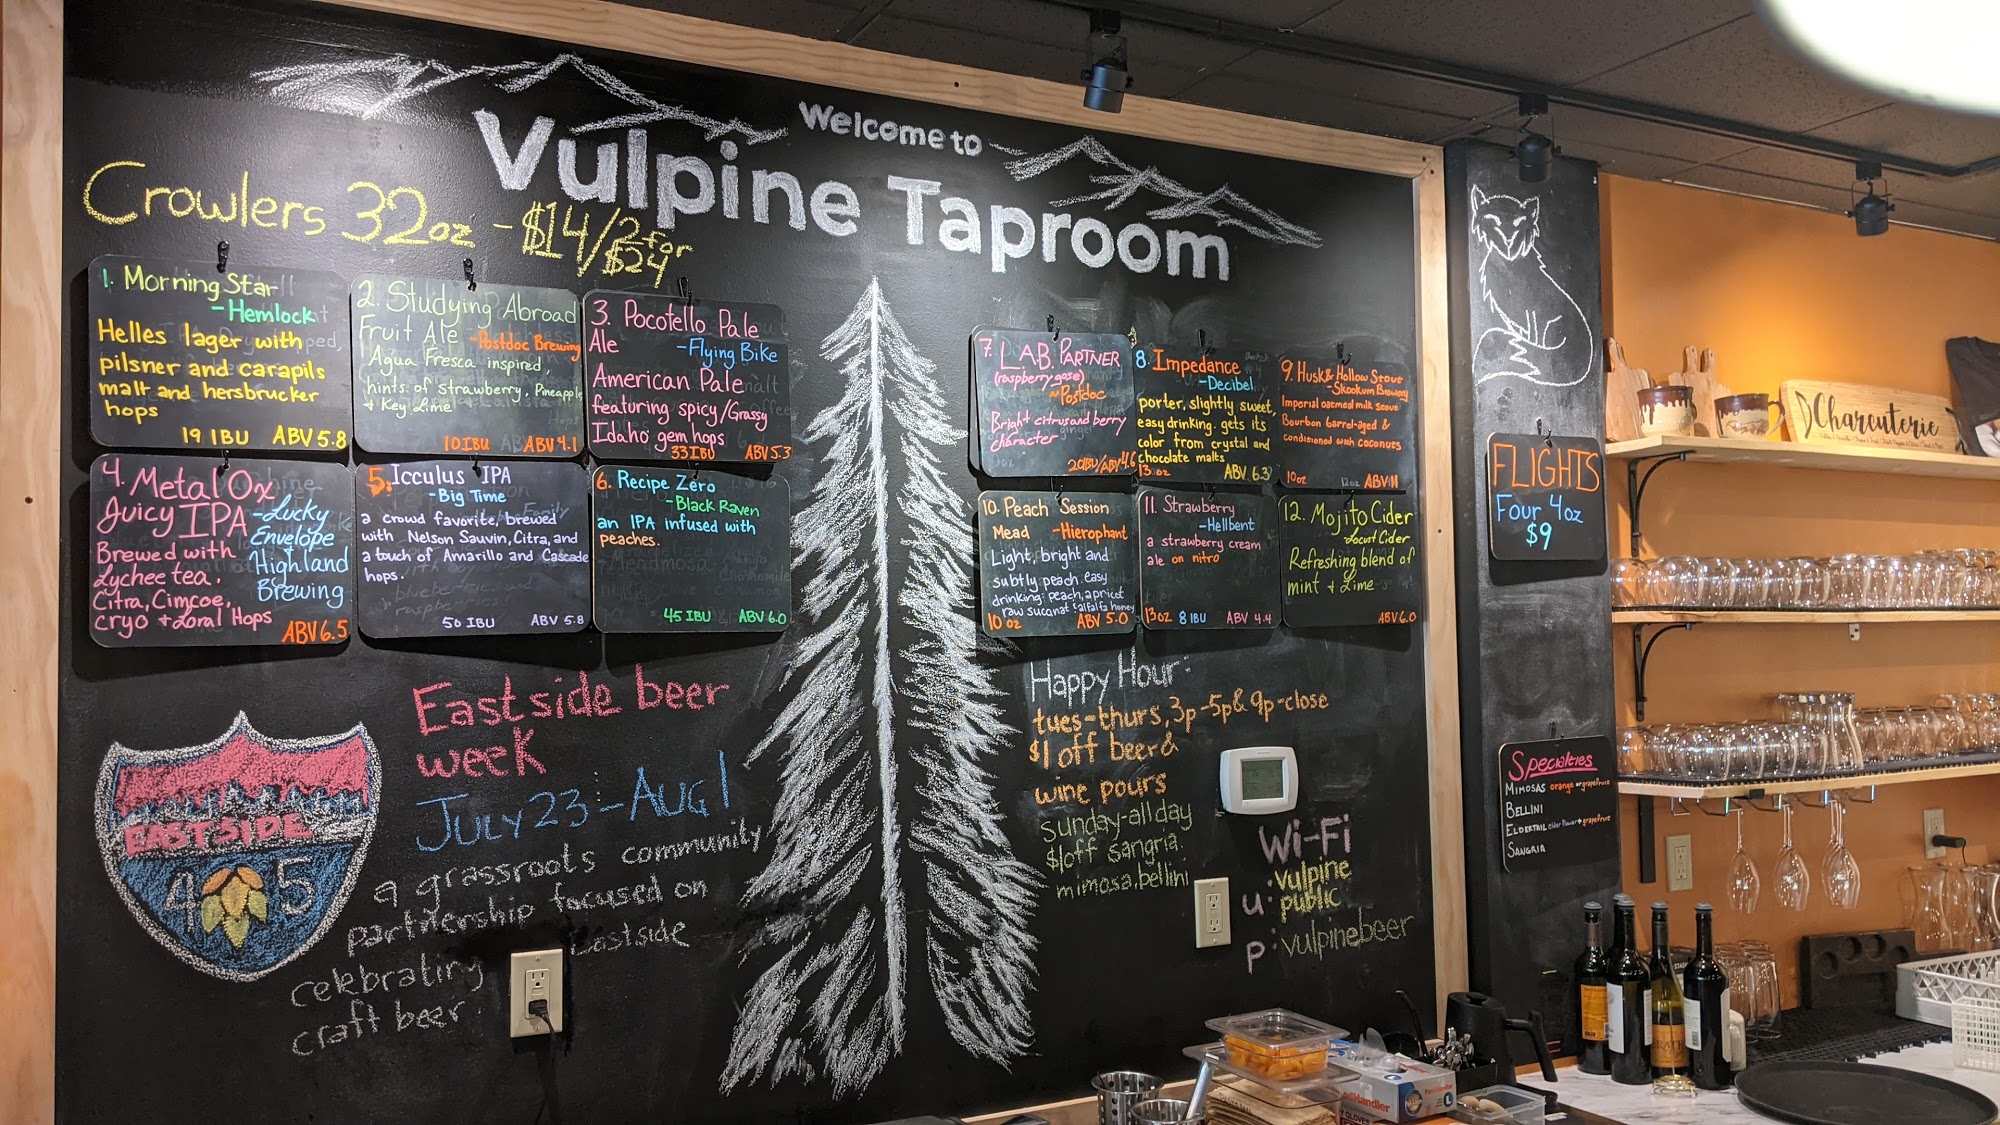 Welcome to
Vulpine Taproom
Crowlers 32oz - $14/2 for
$24
1. Morning Star
- Hemlock
Helles lager with
pilsner and carapils
malt and hersbrucker
hops
19 IBU ABV 5.8
2. Studying Abroad
Fruit Ale - Postdoc Brewing
Agua Fresca inspired,
hints of strawberry, Pineapple
+ Key Lime
10 IBU ABV 4.1
3. Pocotello Pale
Ale - Flying Bike
American Pale
featuring spicy/Grassy
Idaho gem hops
33 IBU ABV 5.3
4. Metal Ox
Juicy IPA - Lucky
Envelope
Brewed with Highland
Lychee tea, Brewing
Citra, Cimcoe,
cryo + Loral Hops
ABV 6.5
5. Icculus IPA
- Big Time
a crowd favorite, brewed
with Nelson Sauvin, Citra, and
a touch of Amarillo and Cascade
hops.
50 IBU ABV 5.8
6. Recipe Zero
- Black Raven
an IPA infused with
peaches.
45 IBU ABV 6.0
7. L.A.B. PARTNER
(raspberry gose)
~ Postdoc
Bright citrus and berry
character
20 IBU/ABV 4.6
8. Impedance
- Decibel
porter, slightly sweet,
easy drinking. gets its
color from crystal and
chocolate malts
13 oz ABV 6.3
9. Husk & Hollow Stout
- Skookum Brewery
Imperial oatmeal milk stout
Bourbon barrel-aged &
conditioned with coconuts
10oz 12oz ABV 11
10. Peach Session
Mead - Hierophant
Light, bright and
subtly peach. easy
drinking. peach, apricot
raw sucanat & alfalfa honey
10 oz ABV 5.0
11. Strawberry
- Hellbent
a strawberry cream
ale on nitro
13oz 8 IBU ABV 4.4
12. Mojito Cider
Locust Cider
Refreshing blend of
mint + Lime
ABV 6.0
Eastside beer
week
July 23 - Aug 1
a grassroots community
partnership focused on
Eastside
celebrating
craft beer.
EASTSIDE
4 5
Happy Hour:
tues-thurs, 3p-5p & 9p-close
$1 off beer &
wine pours
sunday-all day
$1 off sangria.
mimosa, bellini
Wi-Fi
u: vulpine
public
p: vulpinebeer
FLIGHTS
Four 4oz
$9
Specialties
MIMOSAS orange or grapefruit
BELLINI
ELDERTAIL elderflower + grapefruit
SANGRIA
Charcuterie